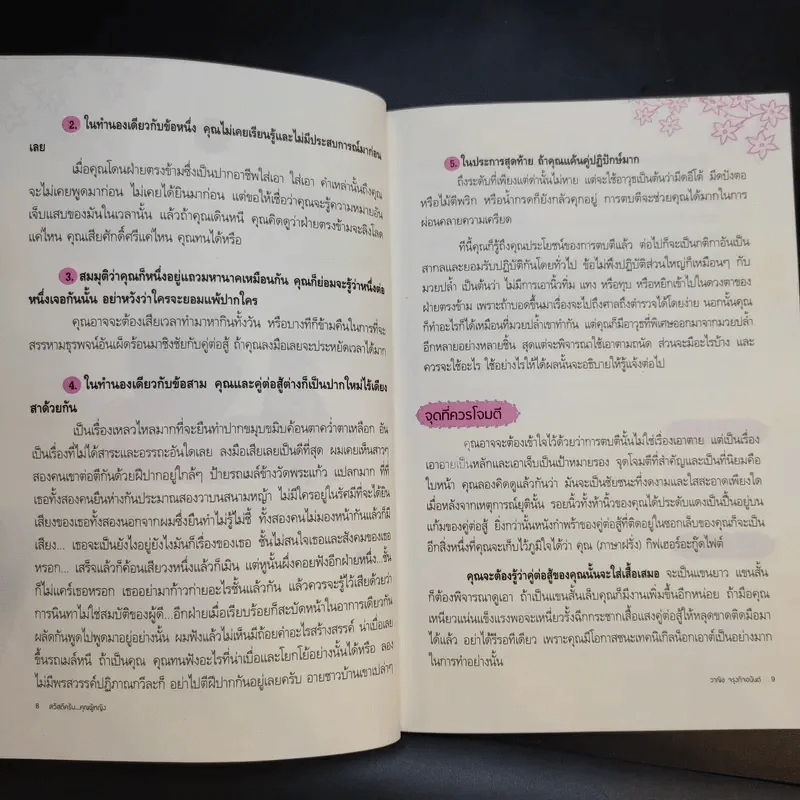 2. ในทำนองเดียวกับข้อหนึ่ง คุณไม่เคยเรียนรู้และไม่มีประสบการณ์มาก่อน
เลย
เมื่อคุณโดนฝ่ายตรงข้ามซึ่งเป็นปากอาชีพใส่เอา ใส่เอา คำเหล่านั้นถึงคุณ
จะไม่เคยพูดมาก่อน ไม่เคยได้ยินมาก่อน แต่ขอให้เชื่อว่าคุณจะรู้ความหมายอัน
เจ็บแสบของมันในเวลานั้น แล้วถ้าคุณเดินหนี คุณคิดดูว่าฝ่ายตรงข้ามจะลิงโลด
แค่ไหน คุณเสียศักดิ์ศรีแค่ไหน คุณทนได้หรือ
3. สมมุติว่าคุณก็หนึ่งอยู่แถวมหานาคเหมือนกัน คุณก็ย่อมจะรู้ว่าหนึ่งต่อ
หนึ่งเจอกันนั้น อย่าหวังว่าใครจะยอมแพ้ปากใคร
คุณอาจจะต้องเสียเวลาทำมาหากินทั้งวัน หรือบางทีก็ข้ามคืนในการที่จะ
สรรหามธุรพจน์อันเผ็ดร้อนมาชิงชัยกับคู่ต่อสู้ ถ้าคุณลงมือเลยจะประหยัดเวลาได้มาก
4. ในทำนองเดียวกับข้อสาม คุณและคู่ต่อสู้ต่างก็เป็นปากใหม่ไร้เดียง
สาด้วยกัน
เป็นเรื่องเหลวไหลมากที่จะยืนทำปากขมุบขมิบค้อนตาคว่ำตาเหลือก อัน
เป็นเรื่องที่ไม่ได้สาระและอรรถะอันใดเลย ลงมือเสียเลยเป็นดีที่สุด ผมเคยเห็นสาวๆ
สองคนเขาต่อตีกันด้วยฝีปากอยู่ใกล้ๆ ป้ายรถเมล์ข้างวัดพระแก้ว แปลกมาก ที่ที่
เธอทั้งสองคนยืนห่างกันประมาณสองวาบนสนามหญ้า ไม่มีใครอยู่ในรัศมีที่จะได้ยิน
เสียงของเธอทั้งสองนอกจากผมซึ่งยืนทำไม่รู้ไม่ชี้ ทั้งสองคนไม่มองหน้ากันแล้วก็มี
เสียง... เธอจะเป็นยังไงอยู่ยังไงมันก็เรื่องของเธอ ชั้นไม่สนใจเธอและสังคมของเธอ
หรอก... เสร็จแล้วก็ค้อนเสียวงหนึ่งแล้วก็เมิน แต่หูนั้นผึ่งคอยฟังอีกฝ่ายหนึ่ง...ชั้น
ก็ไม่แคร์เธอหรอก เธออย่ามาก้าวก่ายอะไรชั้นแล้วกัน แล้วควรจะรู้ไว้เสียด้วยว่า
การนินทาไม่ใช่สมบัติของผู้ดี...อีกฝ่ายเมื่อเรียบร้อยก็สะบัดหน้าในอาการเดียวกัน
ผลัดกันพูดไปพูดมาอยู่อย่างนั้น ผมฟังแล้วไม่เห็นมีถ้อยคำอะไรสร้างสรรค์ น่าเบื่อเลย
ขึ้นรถเมล์หนี ถ้าเป็นคุณ คุณทนฟังอะไรที่น่าเบื่อและโยกโย้อย่างนั้นได้หรือ ลอง
ไม่มีพรสวรรค์ปฏิภาณกวีละก็ อย่าไปตีฝีปากกันอยู่เลยครับ อายชาวบ้านเขาเปล่าๆ
8 สวัสดีครับ...คุณผู้หญิง
5. ในประการสุดท้าย ถ้าคุณแค้นคู่ปฏิปักษ์มาก
ถึงระดับที่เพียงแต่ด่านั้นไม่หาย แต่จะใช้อาวุธเป็นต้นว่ามีดอีโต้ มีดปังตอ
หรือไม้ตีพริก หรือน้ำกรดก็ยังกลัวคุกอยู่ การตบตีจะช่วยคุณได้มากในการ
ผ่อนคลายความเครียด
ทีนี้คุณก็รู้ถึงคุณประโยชน์ของการตบตีแล้ว ต่อไปก็จะเป็นกติกาอันเป็น
สากลและยอมรับปฏิบัติกันโดยทั่วไป ข้อไม่พึงปฏิบัติส่วนใหญ่ก็เหมือนๆ กับ
มวยปล้ำ เป็นต้นว่า ไม่มีการเอานิ้วทิ่ม แทง หรือทุบ หรือหยิกเข้าไปในดวงตาของ
ฝ่ายตรงข้าม เพราะถ้าบอดขึ้นมาเรื่องจะไปถึงศาลถึงตำรวจได้โดยง่าย นอกนั้นคุณ
ก็ทำอะไรก็ได้เหมือนที่มวยปล้ำเขาทำกัน แต่คุณก็มีอาวุธที่พิเศษออกมาจากมวยปล้ำ
อีกหลายอย่างหลายชิ้น สุดแต่จะพิจารณาใช้เอาตามถนัด ส่วนจะมีอะไรบ้าง และ
ควรจะใช้อะไร ใช้อย่างไรให้ได้ผลนั้นจะอธิบายให้รู้แจ้งต่อไป
จุดที่ควรโจมตี
คุณอาจจะต้องเข้าใจไว้ด้วยว่าการตบตีนั้นไม่ใช่เรื่องเอาตาย แต่เป็นเรื่อง
เอาอายเป็นหลักและเอาเจ็บเป็นเป้าหมายรอง จุดโจมตีที่สำคัญและเป็นที่นิยมคือ
ใบหน้า คุณลองคิดดูแล้วกันว่า มันจะเป็นชัยชนะที่งดงามและใสสะอาดเพียงใด
เมื่อหลังจากเหตุการณ์ยุตินั้น รอยนิ้วทั้งห้านิ้วของคุณได้ประดับแดงเป็นปื้นอยู่บน
แก้มของคู่ต่อสู้ ยิ่งกว่านั้นหนังกำพร้าของคู่ต่อสู้ที่ติดอยู่ในซอกเล็บของคุณก็จะเป็น
อีกสิ่งหนึ่งที่คุณจะเก็บไว้ภูมิใจได้ว่า คุณ (ภาษาฝรั่ง) กิฟเฮอร์อะกู๊ดไฟต์
คุณจะต้องรู้ว่าคู่ต่อสู้ของคุณนั้นจะใส่เสื้อเสมอ จะเป็นแขนยาว แขนสั้น
ก็ต้องพิจารณาดูเอา ถ้าเป็นแขนสั้นเล็บคุณก็มีงานเพิ่มขึ้นอีกหน่อย ถ้ามือคุณ
เหนียวแน่นแข็งแรงพอจะเหนี่ยวรั้งฉีกกระชากเสื้อแสงคู่ต่อสู้ให้หลุดขาดติดมือมา
ได้แล้ว อย่าได้รีรอทีเดียว เพราะคุณมีโอกาสชนะเทคนิเกิลน็อกเอาต์เป็นอย่างมาก
ในการทำอย่างนั้น
วาณิช จรุงกิจอนันต์ 9